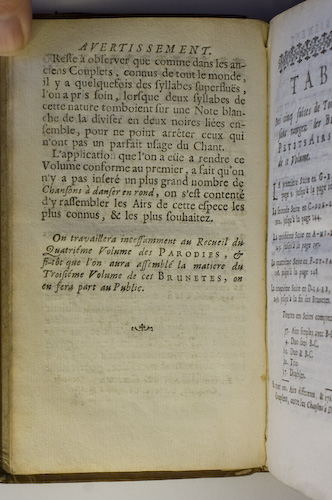 AVERTISSEMENT.
Reste à observer que comme dans les an-
ciens Couplets, connus de tout le monde,
il y a quelquefois des syllabes superfluës,
l'on a pris soin, lorsque deux syllabes de
cette nature tomboient sur une Note blan-
che de la diviser en deux noires liées en-
semble, pour ne point arrêter ceux qui
n'ont pas un parfait usage du Chant.
L'application que l'on a eüe a rendre ce
Volume conforme au premier, a fait qu'on
n'y a pas inseré un plus grand nombre de
Chansons à danser en rond, on s'est contenté
d'y rassembler les Airs de cette espece les
plus connus, & les plus souhaitez.
On travaillera incessamment au Recueil du
Quatriéme Volume des PARODIES, &
si-tôt que l'on aura assemblé la matiere du
Troisiéme Volume de ces BRUNETES, on
en fera part au Public.
TAB
Des cinq suites de Ton
BRU
PETITS AIRS
de ce Volume.
La seconde Suite en
La troisiéme Suite en
La quatriéme Suite en
La cinquiéme Suite en
Toutes ces Suites compre